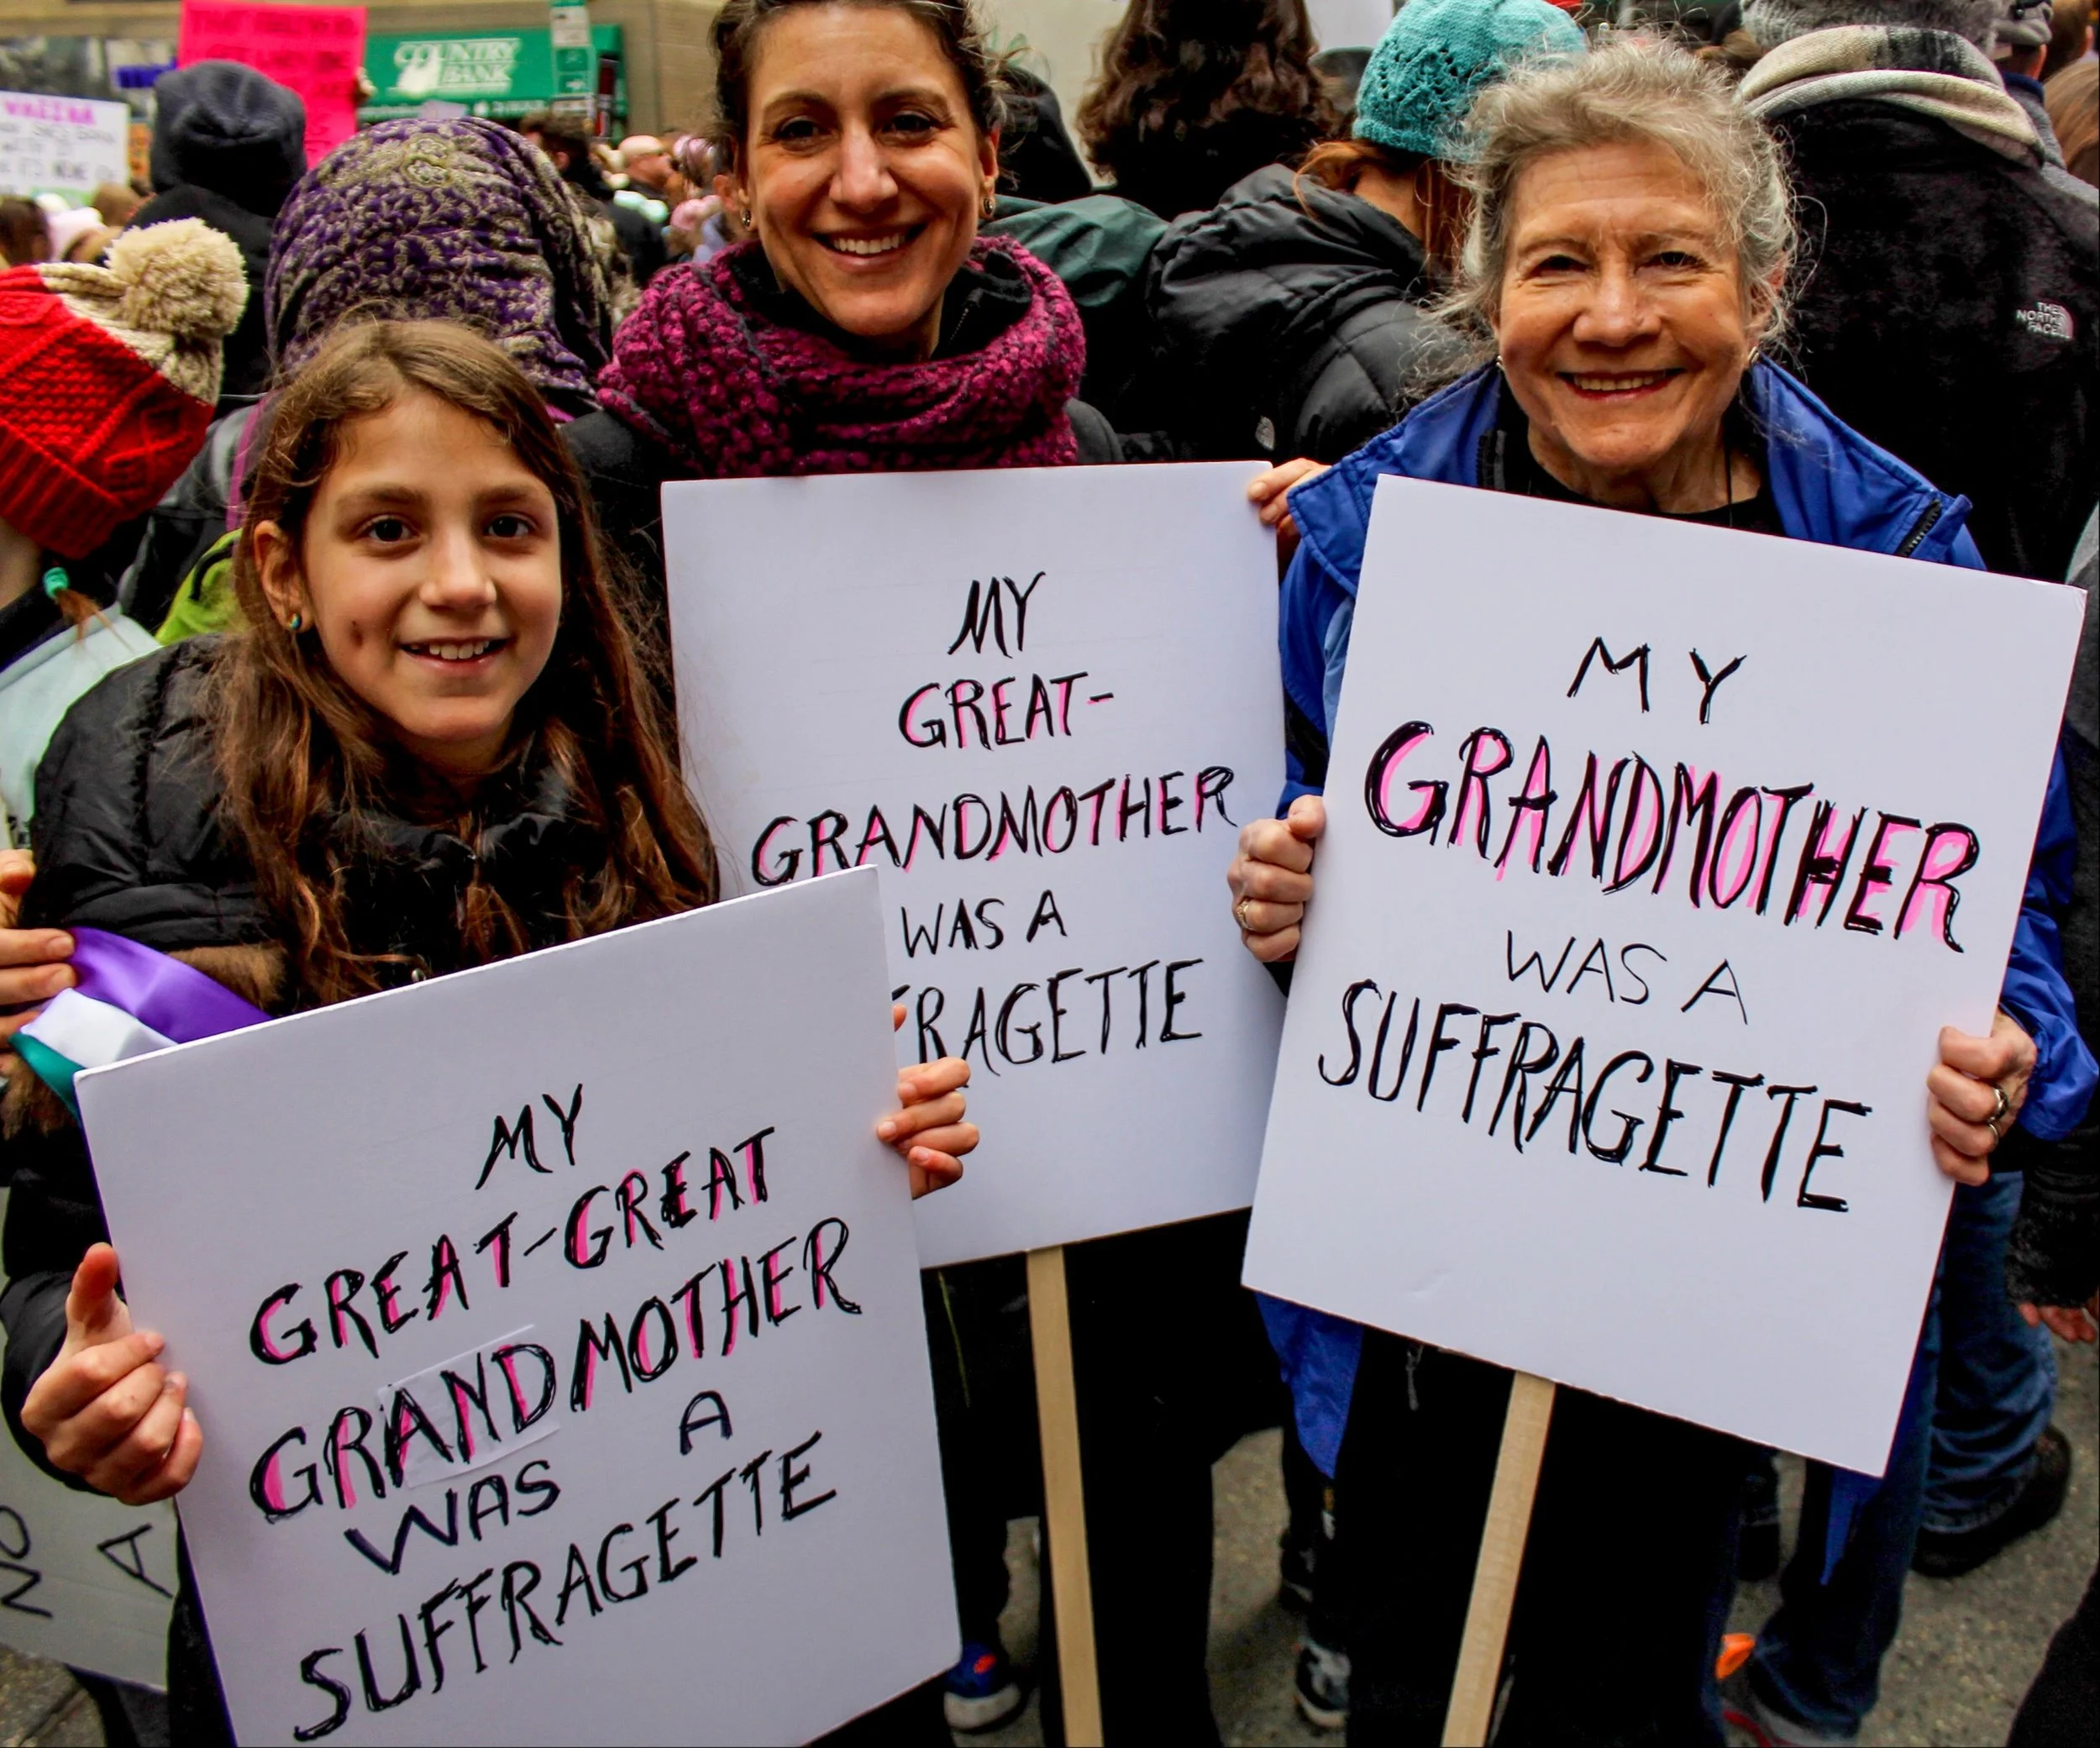 COUNTRY
BANK
THE
NORTH
FACE
MY
GREAT-
GRANDMOTHER
WAS A
FRAGETTE
MY
GRANDMOTHER
WAS A
SUFFRAGETTE
MY
GREAT-GREAT
GRANDMOTHER
WAS A
SUFFRAGETTE
NO
A